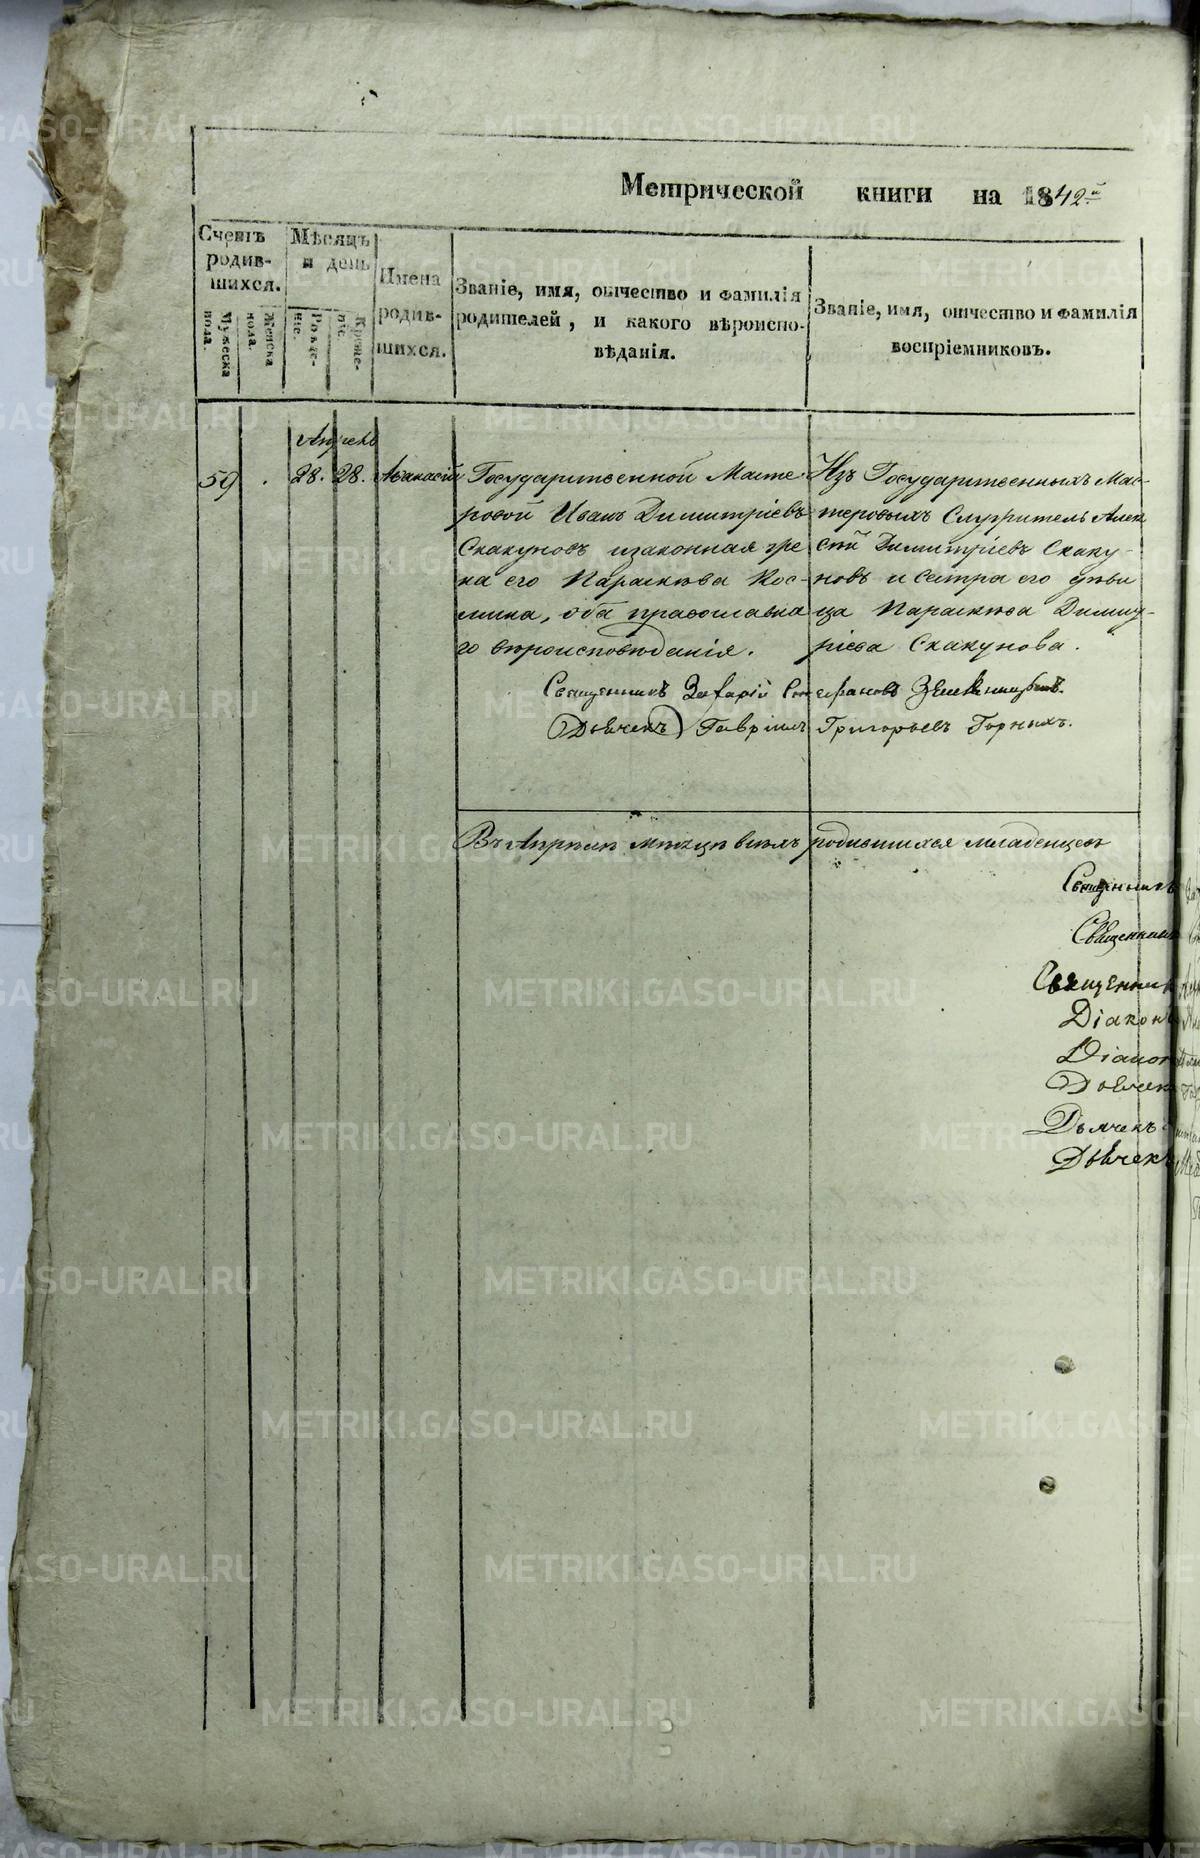 Метрической книги на 1842й
Счетъ родив-
шихся.
Мужеска пола.
Женска пола.
Мѣсяцъ
и день
Рожде-
ніе.
Креще-
ніе.
Имена
родив-
шихся.
Званіе, имя, отчество и фамилія
родителей, и какого вѣроиспо-
вѣданія.
Званіе, имя, отчество и фамилія
воспріемниковъ.
Апрель
59 28. 28. Аѳанасій
Государственной Масте-
ровой Иванъ Димитріевъ
Скакуновъ и законная же
на его Параскѣва Кос-
мина, оба православна
го вѣроисповѣданія.
Изъ Государственныхъ Мас-
теровыхъ Служитель Алек
сѣй Димитріевъ Скаку-
новъ и сестра его дѣви
ца Параскѣва Димит-
ріева Скакунова.
Священникъ Захарій Стефановъ
Дьячекъ Гавріилъ Григорьевъ Горныхъ.
Въ Апрѣлѣ мѣсяцѣ всѣхъ родившихся младенцевъ
Священникъ
Священникъ
Священник
Діаконъ
Діакон
Дьячек
Дьячекъ
Дьячекъ
METRIKI.GASO-URAL.RU